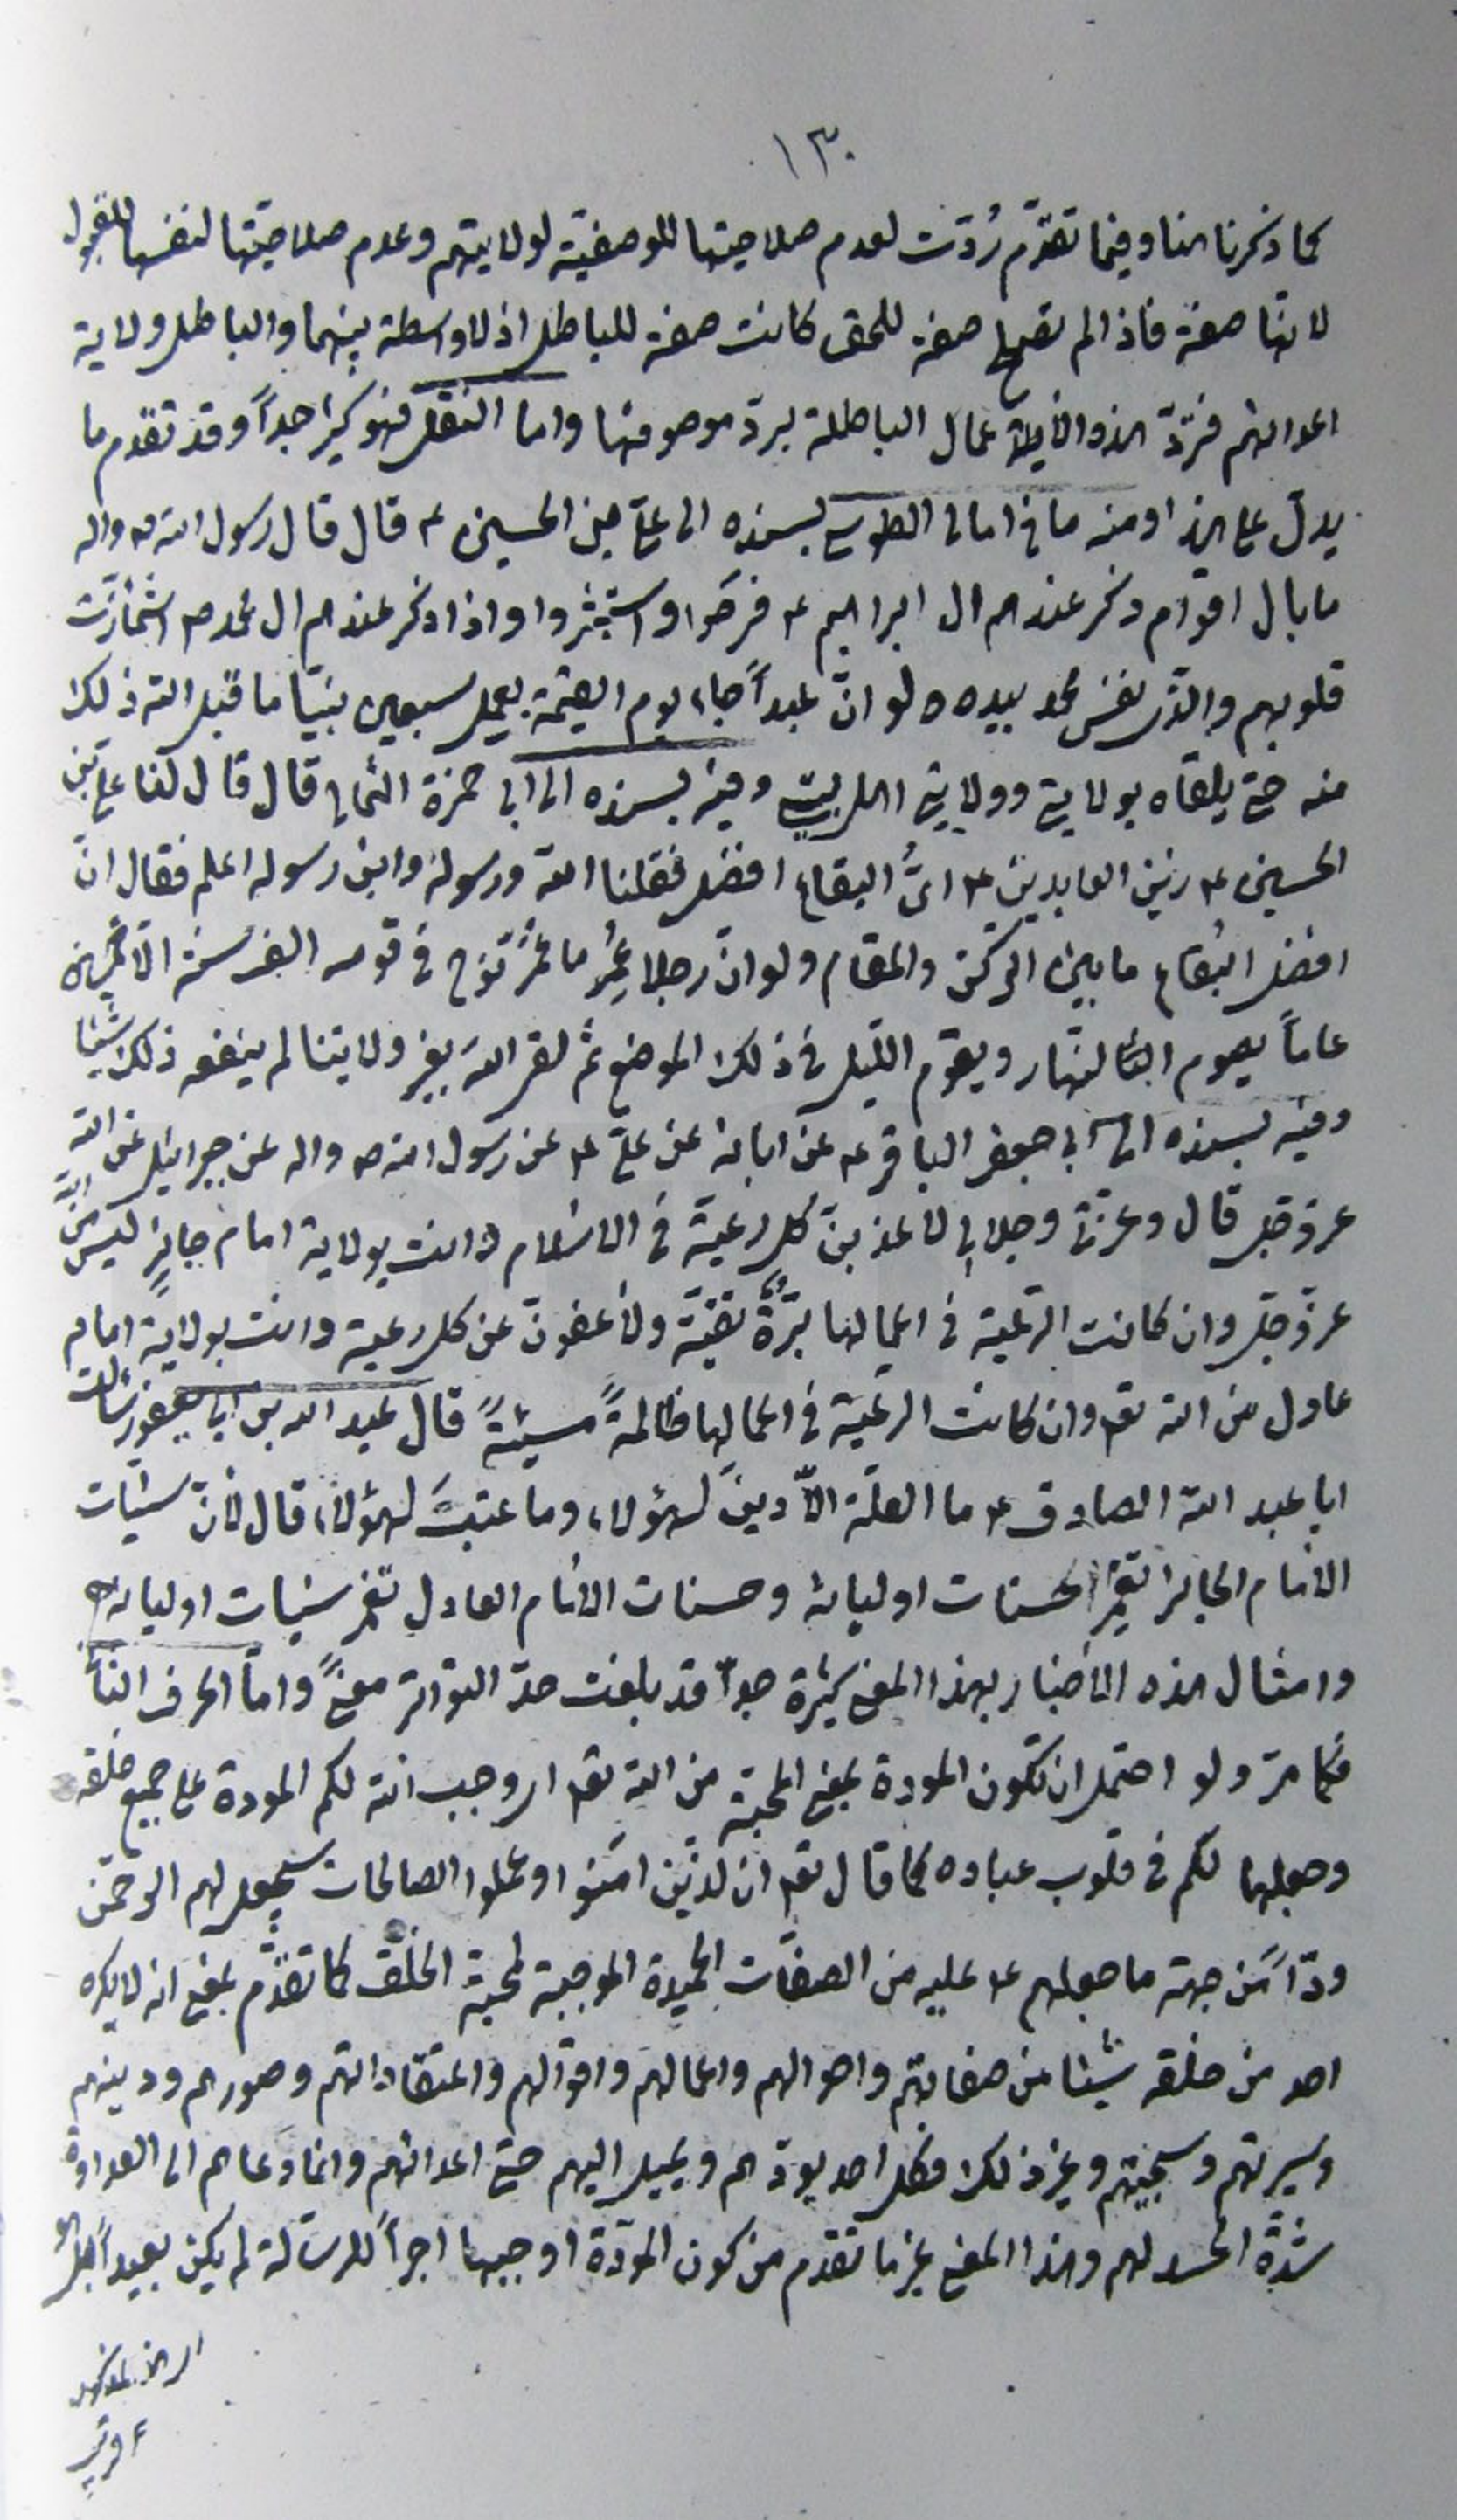 ١٣٠
كما ذكرنا هنا وفيما تقدّم رُدّت لعدم صلاحيتها للوصفيّة لولايتهم وعدم صلاحيّتها لنفسها للقبول
لانها صفة فاذا لم تصح صفة للحق كانت صفة للباطل اذ لا واسطة بينهما والباطل ولاية
اعدائهم فتردّ هذه الاعمال الباطلة بردّ موصوفها واما النقل فهو كثير جداً وقد تقدم ما
يدل على هذا ومنه ما في امالى الطوسى بسنده الى علىّ بن الحسين ع قال قال رسول الله ص واله
ما بال اقوام ذكر عندهم ال ابراهيم ع فرحوا واستبشروا واذا ذكر عندهم ال محمد ص اشمأزّت
قلوبهم والذى نفس محمد بيده لو انّ عبداً جاء يوم القيمة بعمل سبعين نبيّا ما قبل الله ذلك
منه حتى يلقاه بولايتى وولاية اهل بيتى وفيه بسنده الى ابى حمزة الثمالى قال قال لنا على بن
الحسين ع زين العابدين ع اىُّ البقاع افضل فقلنا الله ورسوله وابن رسوله اعلم فقال انّ
افضل البقاع ما بين الركن والمقام ولو انّ رجلا عُمِّر ما عُمِّر نوح فى قومه الف سنة الّا خمسين
عاماً يصوم النهار ويقوم الليل فى ذلك الموضع ثم لقى الله بغير ولايتنا لم ينفعه ذلك شيئا
وفيه بسنده الى ابى جعفر الباقر ع عن ابائه عن علىّ ع عن رسول الله ص واله عن جبرائيل عن الله
عزوجل قال وعزتى وجلالى لاعذبنّ كل رعيّة فى الاسلام دانت بولاية امام جايرٍ ليس من الله
عزّوجلّ وان كانت الرعية فى اعمالها برّة تقيّة ولأعفونّ عن كل رعية دانت بولاية امام
عادل من الله تع وان كانت الرعية فى اعمالها ظالمةً مسيئةً قال عبد الله بن ابى يعفور سألت
ابا عبد الله الصادق ع ما العلّة الّا دين لهؤلاء وما عتب لهؤلاء قال لانّ سيّات
الامام الجاير تغمر الحسنات اوليائه وحسنات الامام العادل تغمر سيّات اوليائه
وامثال هذه الاخبار بهذا المعنى كثيرة جداً قد بلغت حدّ التواتر معنىً وامّا الحرف الثانى
فكما مرّ ولو احتمل ان تكون المودة بمعنى المحبّة من الله تع اى وجب الله لكم المودة على جميع خلقه
وجعلها لكم فى قلوب عباده كما قال تع ان الذين امنوا وعملوا الصالحات سيجعل لهم الرحمن
ودّاً من جهة ما جعلهم ع عليه من الصفات الحميدة الموجبة لمحبة الخلق كما تقدّم بمعنى انه لا يكره
احد من خلقه شيئا من صفاتهم واحوالهم واعمالهم واقوالهم واعتقاداتهم وصورهم ودينهم
وسيرتهم وسجيتهم وغير ذلك فكل احد يودّهم ويميل اليهم حتى اعدائهم وانما دعاهم الى العداوة
شدّة الحسد لهم وهذا المعنى غير ما تقدم من كون المودّة اوجبها اجراً للرسالة لم يكن بعيداً بل هو